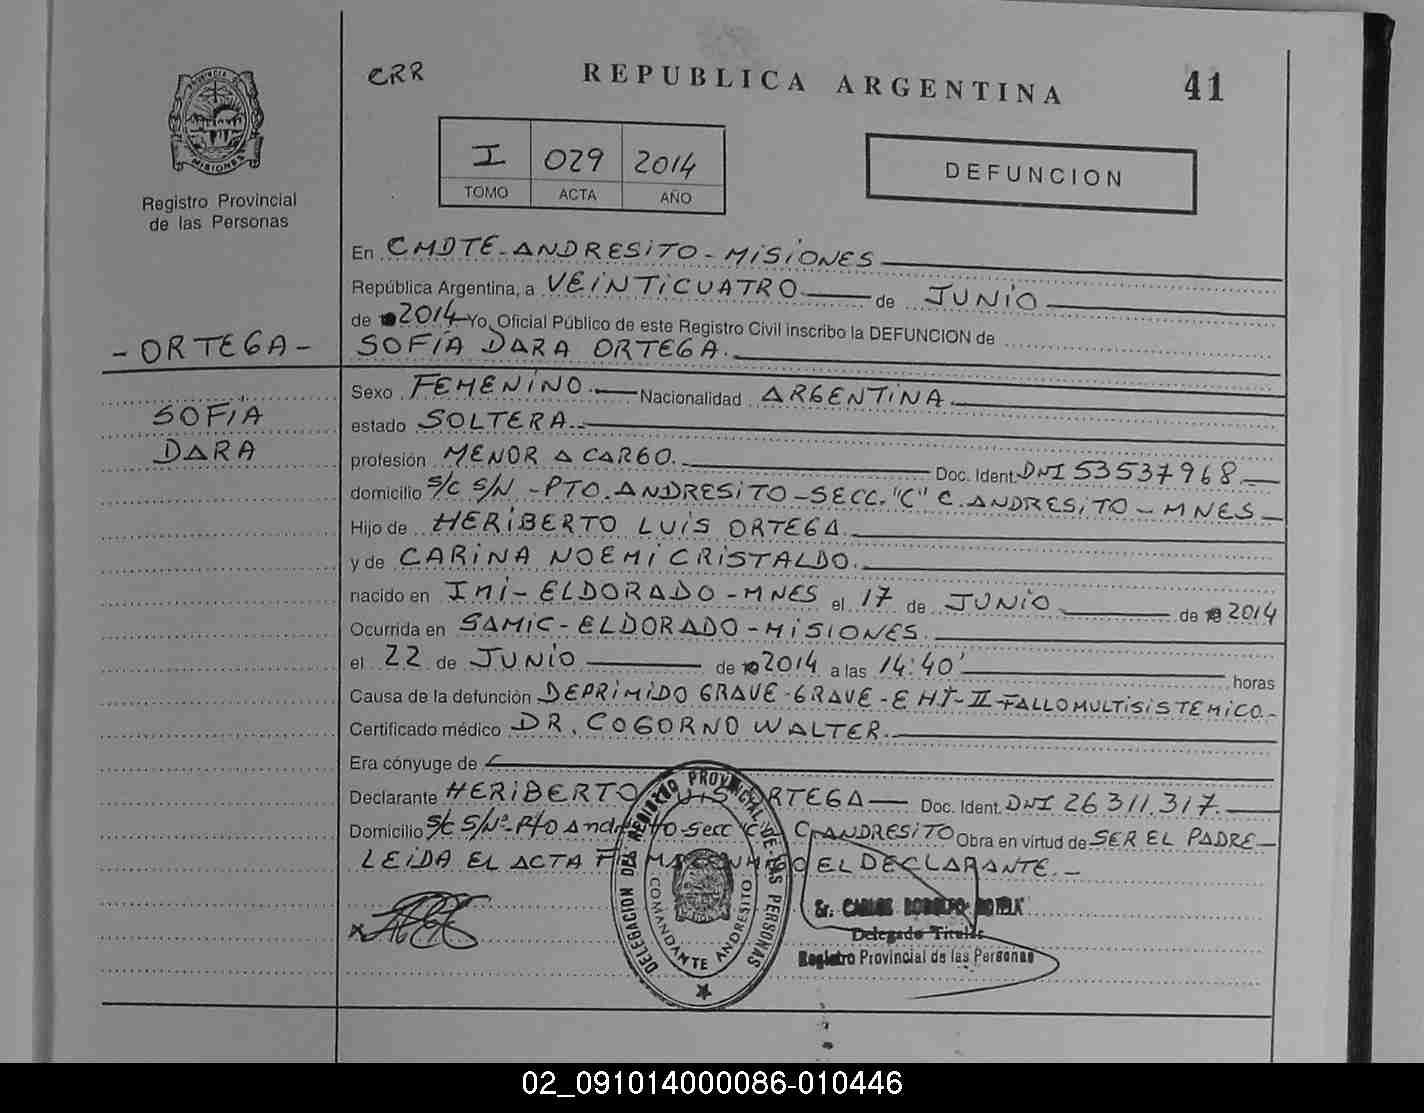 CRR
REPUBLICA ARGENTINA
41
PROVINCIA DE
MISIONES
Registro Provincial
de las Personas
I 029 2014
TOMO ACTA AÑO
DEFUNCION
En CMDTE-ANDRESITO-MISIONES
República Argentina, a VEINTICUATRO de JUNIO
de 2014 Yo, Oficial Público de este Registro Civil inscribo la DEFUNCION de
-ORTEGA-
SOFÍA DARA ORTEGA.
SOFÍA
DARA
Sexo FEMENINO.— Nacionalidad ARGENTINA.
estado SOLTERA.
profesión MENOR A CARGO. Doc. Ident. DNI 53537968.—
domicilio S/C S/N -PTO.ANDRESITO-SECC."C" C.ANDRESITO-MNES-
Hijo de HERIBERTO LUIS ORTEGA.
y de CARINA NOEMI CRISTALDO.
nacido en IMI-ELDORADO-MNES el 17 de JUNIO de 2014
Ocurrida en SAMIC-ELDORADO-MISIONES.
el 22 de JUNIO de 2014 a las 14:40' horas
Causa de la defunción DEPRIMIDO GRAVE-GRAVE-E HI-II-FALLO MULTISISTEMICO.-
Certificado médico DR. COGORNO WALTER.
Era cónyuge de
Declarante HERIBERTO LUIS ORTEGA— Doc. Ident. DNI 26311.317.
Domicilio S/C S/Nº-Pto Andresito-Secc "C" C.ANDRESITO Obra en virtud de SER EL PADRE—
LEIDA EL ACTA EL DECLARANTE.-
DELEGACION DEL REGISTRO PROVINCIAL DE LAS PERSONAS
COMANDANTE ANDRESITO
Sr. CARLOS RODOLFO
Delegado Titular
Registro Provincial de las Personas
02_091014000086-010446